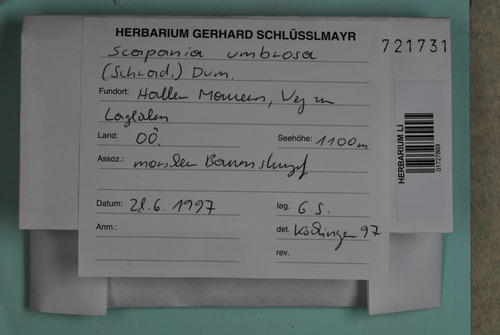 HERBARIUM GERHARD SCHLÜSSLMAYR
Scapania umbrosa
721731
(Schrad.) Dum.
Fundort: Haller Mauern, Weg zur
Laglalm
Land: OÖ. Seehöhe: 1100m
Assoz.: morscher Baumstumpf
Datum: 21.6.1997 leg. G.S.
Anm.: det. Köckinger 97
rev.
HERBARIUM LI
01727869